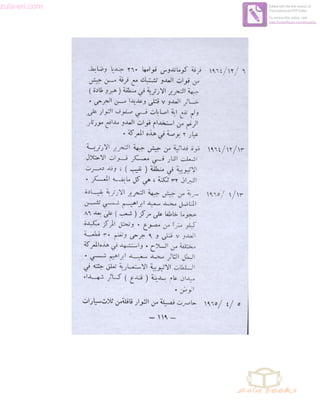 zula-eri.com
Edited with the trial version of
Foxit Advanced PDF Editor
To remove this notice, visit:
www.foxitsoftware.com/shopping
٩ /١٢/ ١٩٦٤ فرقة كوماندوس قوامها ٢٦٠ جنديا وضابطا
من قوات العدو تشتبك مع فرقة من جيش
جبهة التحرير الارترية في منطقة ( هبرو طادة )
خسائر العدو ٧ قتلى وعديدا من الجرحى ٠
ولم تقع اية اصابات في صفوف الثوار على
الرغم من استخدام قوات العدو مدافع مورتار
عيار ٢ بوصة في هذه المعركة ٠
١٩٦٤/١٢/١٣ قوة فدائية من جيش جبهة التحرير الارترية
اشعلت النار في معسكر قوات الاحتلال
الاثيوبية في منطقة ( نقيب ) ، وقد دمرت
النيران ٣٢ ثكنة ، هي كل ما يضمه المعسكر ٠
١٩٦٥/ ١/١٣ سرية من جيش جبهة التحرير الارترية بقيادة
المناضل محمد سعيد ابراهيم شمسي تشن
هجوما خاطفا على مركز ( شعب ) على بعد ٨٦
كيلو مترا من مصوع ٠ وتحتل المركز مكبدة
العدو ٧ قتلى و ٩ جرحى وتغنم ٣٠ قطعة
مختلفة من السلاح ٠ واستشهد في هذه المعركة
البطل الثائر محمد سعيد ابراهيم شمسي ٠
السلطات الاثيوبية الاستعمارية تعلق جثته في
ميدان عام بمدينة ( قندع ) كسائر شهداء
الوطن ٠
٥ /٤ / ١٩٦٥ حاصرت فصيلة من الثوار قافلة من ثلاث سيارات
— ١١٩ —
zula books